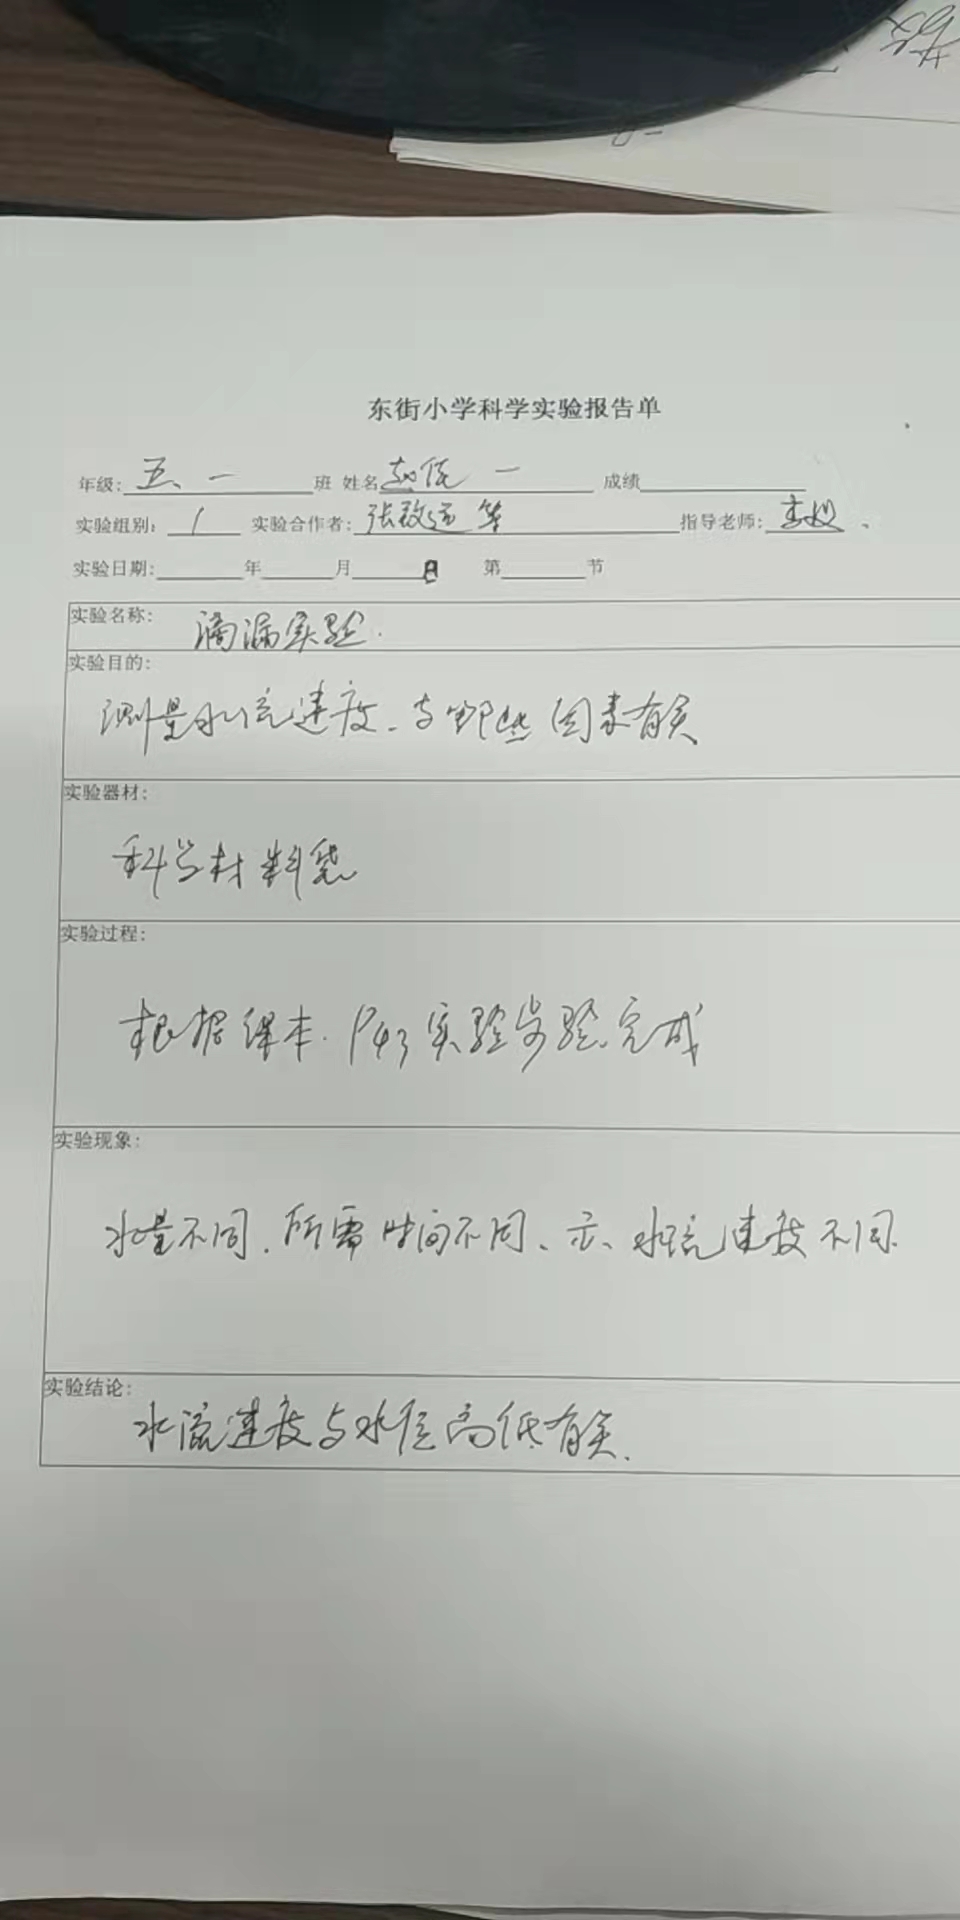 东街小学科学实验报告单
年级: 五、一 班 姓名 一 成绩
实验组别: 1 实验合作者: 张 等 指导老师: 李
实验日期: 年 月 日 第 节
实验名称:
滴漏实验.
实验目的:
测量水流速度、与哪些因素有关
实验器材:
科学材料袋
实验过程:
根据课本. P43 实验步验完成
实验现象:
水量不同、所需时间不同、示、水流速度不同.
实验结论:
水流速度与水位高低有关.